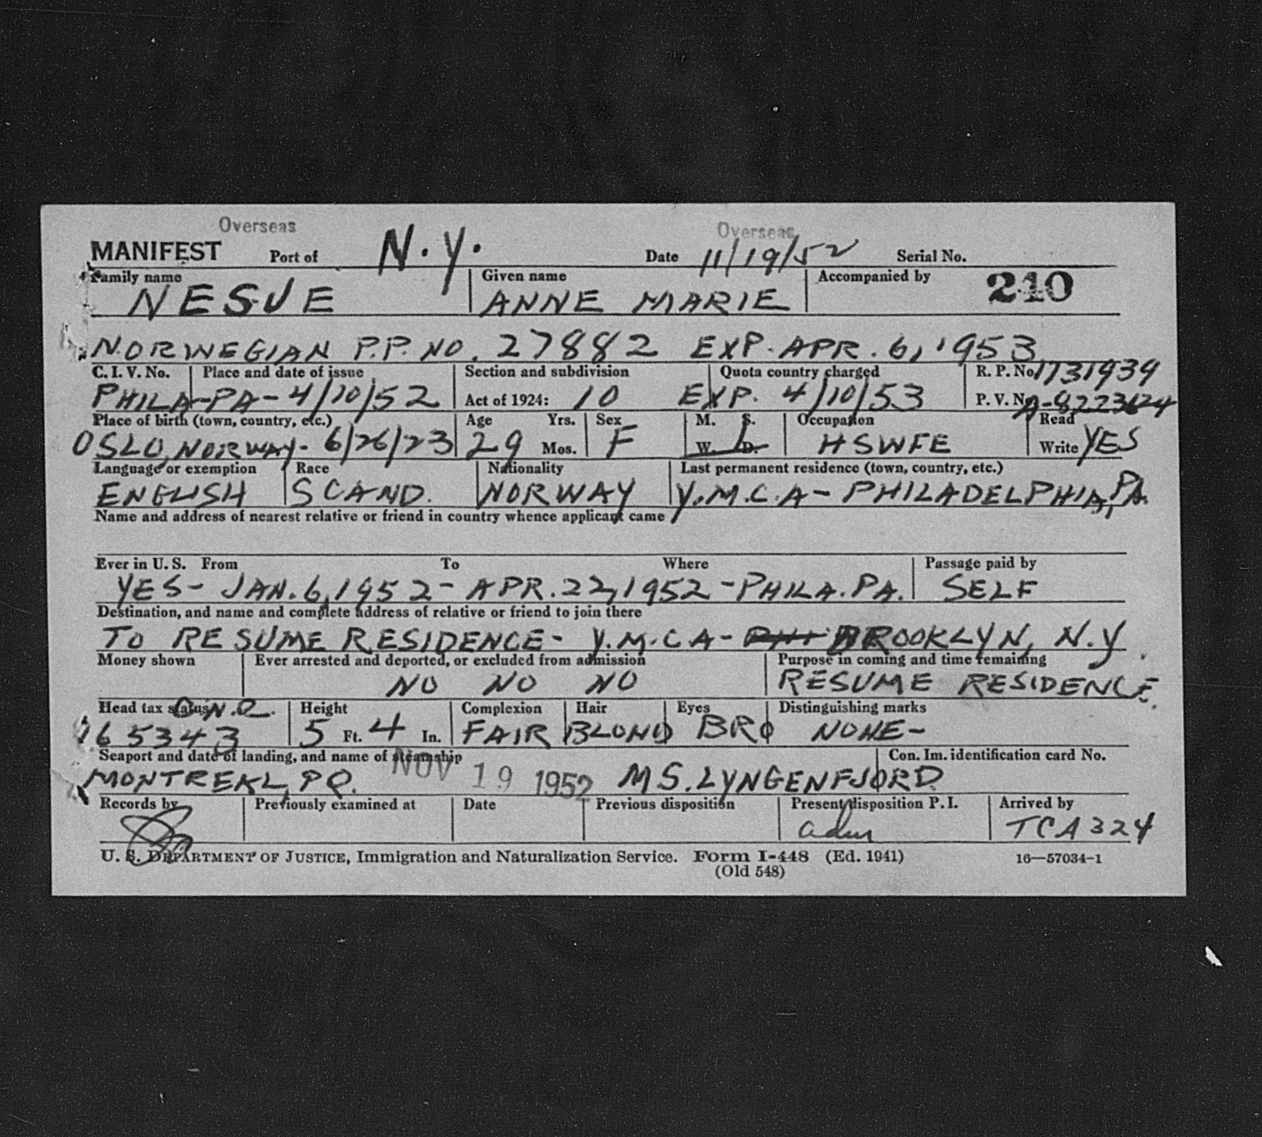 Overseas Overseas
MANIFEST Port of N.Y. Date 11/19/52 Serial No.
Family name Given name Accompanied by 240
NESJE ANNE MARIE
NORWEGIAN P.P. NO. 27882 EXP. APR. 6, 1953
C. I. V. No. Place and date of issue Section and subdivision Quota country charged R. P. No. 1731939
PHILA-PA-4/10/52 Act of 1924: 10 EXP. 4/10/53 P. V. No. A-8223624
Place of birth (town, country, etc.) Age Yrs. Sex M. S. Occupation Read
OSLO, NORWAY-6/26/23 29 Mos. F W. D. HSWFE Write YES
Language or exemption Race Nationality Last permanent residence (town, country, etc.)
ENGLISH SCAND. NORWAY Y.M.C.A-PHILADELPHIA, PA.
Name and address of nearest relative or friend in country whence applicant came
Ever in U. S. From To Where Passage paid by
YES-JAN. 6, 1952-APR. 22, 1952-PHILA. PA. SELF
Destination, and name and complete address of relative or friend to join there
TO RESUME RESIDENCE- Y.M.C A- BROOKLYN, N.Y.
Money shown Ever arrested and deported, or excluded from admission Purpose in coming and time remaining
NO NO NO RESUME RESIDENCE.
Head tax status Height Complexion Hair Eyes Distinguishing marks
65343 5 Ft. 4 In. FAIR BLOND BRO NONE-
Seaport and date of landing, and name of steamship Con. Im. identification card No.
MONTREAL, PQ. NOV 19 1952 MS. LYNGENFJORD
Records by Previously examined at Date Previous disposition Present disposition P. I. Arrived by
adm TCA 324
U. S. DEPARTMENT OF JUSTICE, Immigration and Naturalization Service. Form I-448 (Ed. 1941) 16—57034-1
(Old 548)